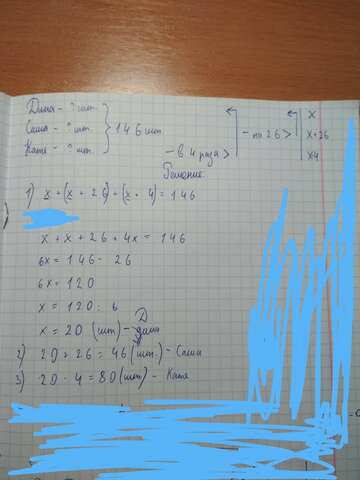 Дима - ? шт.
Саша - ? шт. } 146 шт
Катя - ? шт.
x
- на 26 > x+26
- в 4 раза > x4
Решение
1) x + (x + 26) + (x · 4) = 146
x + x + 26 + 4x = 146
6x = 146 - 26
6x = 120
x = 120 : 6
x = 20 (шт) - Дима
2) 20 + 26 = 46 (шт.) - Саша
3) 20 · 4 = 80 (шт) - Катя